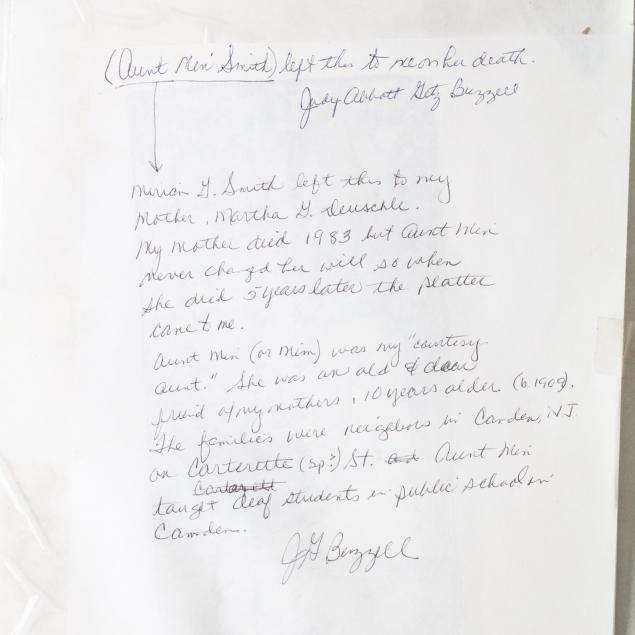 (Aunt Min Smith) left this to me on her death.
Judy Abbott Getz Buzzell
Miriam G. Smith left this to my
Mother, Martha G. Deuschle.
My mother died 1983 but Aunt Min
never changed her will so when
she died 5 years later the platter
came to me.
Aunt Min (or Mim) was my "courtesy
aunt." She was an old & dear
friend of my mothers, 10 years older (b. 1909).
The families were neighbors in Camden, NJ.
on Carterette (sp?) St. Aunt Min
taught deaf students in public school in
Camden.
JG Buzzell